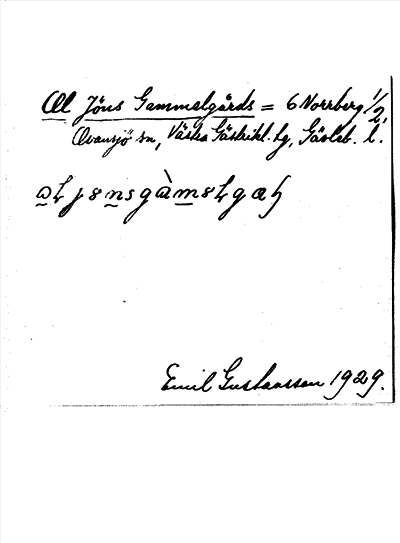 Œl Jöns Gammelgårds = 6 Norrberg 1/2,
Ovansjö sn, Västra Gästrikl. tg, Gävleb. l.
Emil Gustavsson 1929.